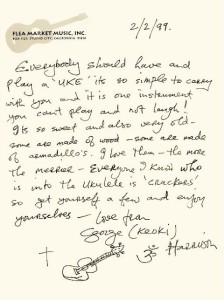 FLEA MARKET MUSIC, INC.
BOX 1127, STUDIO CITY, CALIFORNIA 91614
2/2/99.
Everybody should have and
play a 'UKE' its so simple to carry
with you and it is one instrument
you cant play and not laugh!
Its so sweet and also very old -
some are made of wood - some are made
of armadillo's. I love them - the more
the merrier - Everyone I know who
is into the Ukulele is 'crackers'
so get yourself a few and enjoy
yourselves - Love from
George (Keoki)
ॐ Harrison